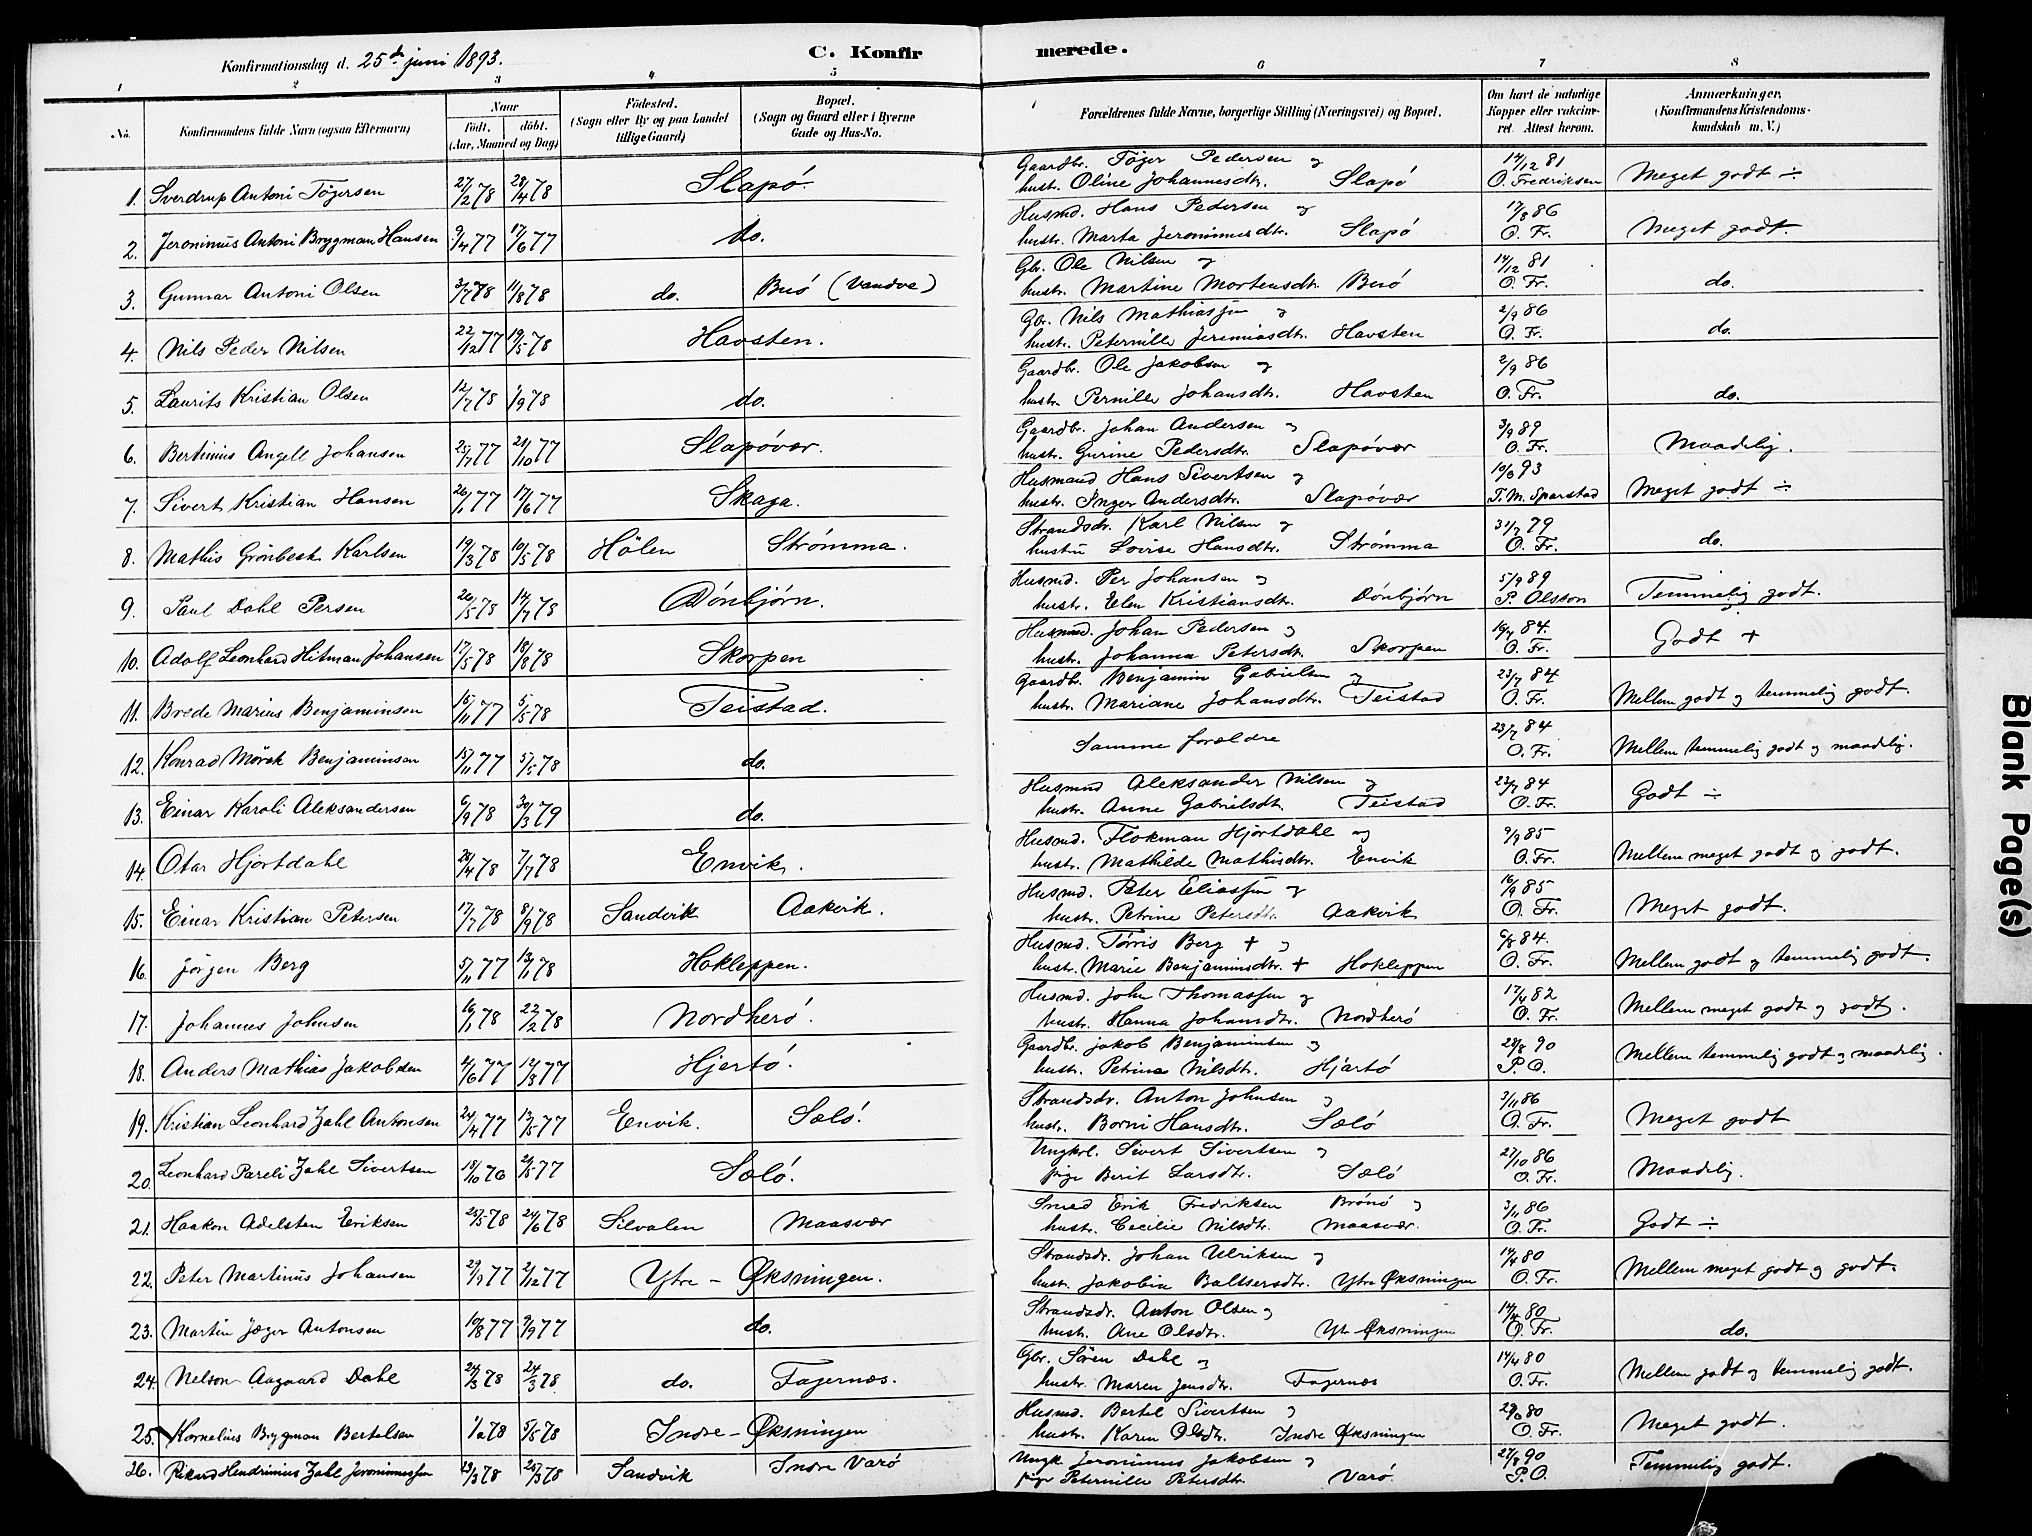 Konfirmationsdag d. 25de juni 1893.
C. Konfirmerede.
1 2 3 4 5 6 7 8
No. Konfirmandens fulde Navn (ogsaa Efternavn) Naar födt. döbt. (Aar, Maaned og Dag) Födested. (Sogn eller By og paa Landet tillige Gaard) Bopæl. (Sogn og Gaard eller i Byerne Gade og Hus-No. Forældrenes fulde Navne, borgerlige Stilling (Næringsvei) og Bopæl. Om havt de naturlige Kopper eller vakcineret. Attest herom. Anmærkninger. (Konfirmandens Kristendomskundskab m. V.)
1. Sverdrup Antoni Tögersen 27/2 78 28/4 78 Slapö. Gaardbr. Töger Pedersen og hustr. Oline Johannesdtr. Slapö 14/12 81 O. Fredriksen Meget godt ÷
2. Jeronimus Antoni Brygman Hansen 9/4 77 17/6 77 do. Husmd. Hans Pedersen og hustr. Marta Jeronimusdtr. Slapö 17/8 86 O. Fr. Meget godt.
3. Gunnar Antoni Olsen 3/7 78 11/8 78 do. Buö (Vandve) Gbr. Ole Nilsen og hustr. Martine Mortensdtr. Buö 14/12 81 O. Fr. do.
4. Nils Peder Nilsen 22/12 77 19/5 78 Havsten. Gbr. Nils Mathiassen og hustr. Peternille Jeremiasdtr. Havsten 2/9 86 O. Fr. do.
5. Laurits Kristian Olsen 12/7 78 1/9 78 do. Gaardbr. Ole Jakobsen og hustr. Pernille Johansdtr. Havsten 2/9 86 O. Fr. do.
6. Bertinius Angell Johansen 25/7 77 21/10 77 Slapövær. Gaardbr. Johan Andersen og hustr. Gurine Pedersdtr. Slapövær 3/9 89 O. Fr. Maadelig.
7. Sivert Kristian Hansen 26/1 77 17/6 77 Skaga. Husmand Hans Sivertsen og hustr. Inger Andersdtr. Slapövær 19/6 93 T. M. Sparstad Meget godt ÷
8. Mathis Grönbeck Karlsen 19/3 78 10/5 78 Hölen Strömma. Strandsdr. Karl Nilsen og hustru Lovise Hansdtr. Strömma 31/7 79 O. Fr. do.
9. Paul Dahl Persen 26/5 78 14/7 78 Dönbjörn. Husmd. Per Johansen og hustr. Elen Kristiansdtr. Dönbjörn 5/9 89 P. Olsson Temmelig godt.
10. Adolf Leonhard Hitman Johansen 17/5 78 18/8 78 Skorpen Husmd. Johan Pedersen og hustr. Johanna Petersdtr. Skorpen 16/7 84. O. Fr. Godt +
11. Brede Marius Benjaminsen 15/11 77 5/5 78 Teistad. Gaardbr. Benjamin Gabrielsen og hustr. Mariane Johansdtr. Teistad 23/7 84 O. Fr. Mellem godt og temmelig godt.
12. Konrad Mörch Benjaminsen 15/11 77 5/5 78 do. Samme forældre 23/7 84 O. Fr. Mellem temmelig godt og maadelig.
13. Einar Karoli Aleksandersen 6/9 78 30/3 79 do. Husmd Aleksander Nilsen og hustr. Anne Gabrielsdtr. Teistad 23/7 84 O. Fr. Godt ÷
14. Otar Hjortdahl 28/4 78 7/7 78 Envik. Husmd. Flokman Hjortdahl og hustr. Mathilde Mathisdtr. Envik 9/9 85 O. Fr. Mellem meget godt og godt.
15. Einar Kristian Petersen 17/7 78 8/9 78 Sandvik Aakvik. Husmd. Peter Eliassen og hustr. Petrine Petersdtr. Aakvik 16/9 85 O. Fr. Meget godt.
16. Jörgen Berg 5/11 77 13/1 78 Hokleppen. Husmd. Törris Berg + og hustr. Marie Benjaminsdtr. + Hokleppen 6/8 84. O. Fr. Mellem godt og temmelig godt.
17. Johannes Johnsen 16/1 78 22/2 78 Nordherö. Husmd. John Thomassen og hustr. Hanna Johansdtr. Nordherö 17/4 82 O. Fr. Mellem meget godt og godt.
18. Anders Mathias Jakobsen 4/6 77 12/8 77 Hjertö. Gaardbr. Jakob Benjaminsen og hustr. Petrine Nilsdtr. Hjartö 28/8 90 P. O. Mellem temmelig godt og maadelig.
19. Kristian Leonhard Zahl Antonsen 24/4 77 13/5 77 Envik. Sælö. Strandsdr. Anton Johnsen og hustr. Borni Hansdtr. Sælö 3/11 86 O. Fr. Meget godt
20. Leonhard Pareli Zahl Sivertsen 18/10 76 21/5 77 Sælö. Ungkrl. Sivert Sivertsen og pige Berit Larsdtr. Sælö 27/10 86 O. Fr. Maadelig.
21. Haakon Adelsten Eriksen 25/5 78 24/6 78 Silvalen Maasvær Smed Erik Fredriksen Brönö og hustr. Cecilie Nilsdtr. Maasvær. 3/11 86 O. Fr. Godt ÷
22. Peter Martinus Johansen 29/9 77 2/12 77 Ytre - Øksningen. Strandsdr. Johan Ulriksen og hustr. Jakobia Baltsersdtr. Ytre Øksningen 14/4 80 O. Fr. Mellem meget godt og godt.
23. Martin Jæger Antonsen 10/8 77 9/9 77 do. Strandsdr. Anton Olsen og hustr. Ane Olsdtr. Ytr Øksningen 14/4 80 O. Fr. do.
24. Nelson Aagaard Dahl 24/3 78 24/3 78 do. Fagernæs. Gbr. Sören Dahl og hustr. Maren Jensdtr. Fagernæs 14/4 80 O. Fr. Mellem godt og temmelig godt.
25. Kornelius Brygman Bertelsen 1/2 78 5/5 78 Indre - Øksningen Husmd. Bertel Sivertsen og hustr. Karen Olsdtr. Indre Øksningen 80 O. Fr. Meget godt.
26. Rikard Hendrinius Zahl Jeronimussen 23/3 78 78 Sandvik Indre Varö Ungk Jeronimus Jakobsen og pige Peternille Petersdtr. Varö. 27/8 90 P. O. Temmelig godt.
Blank Page(s)